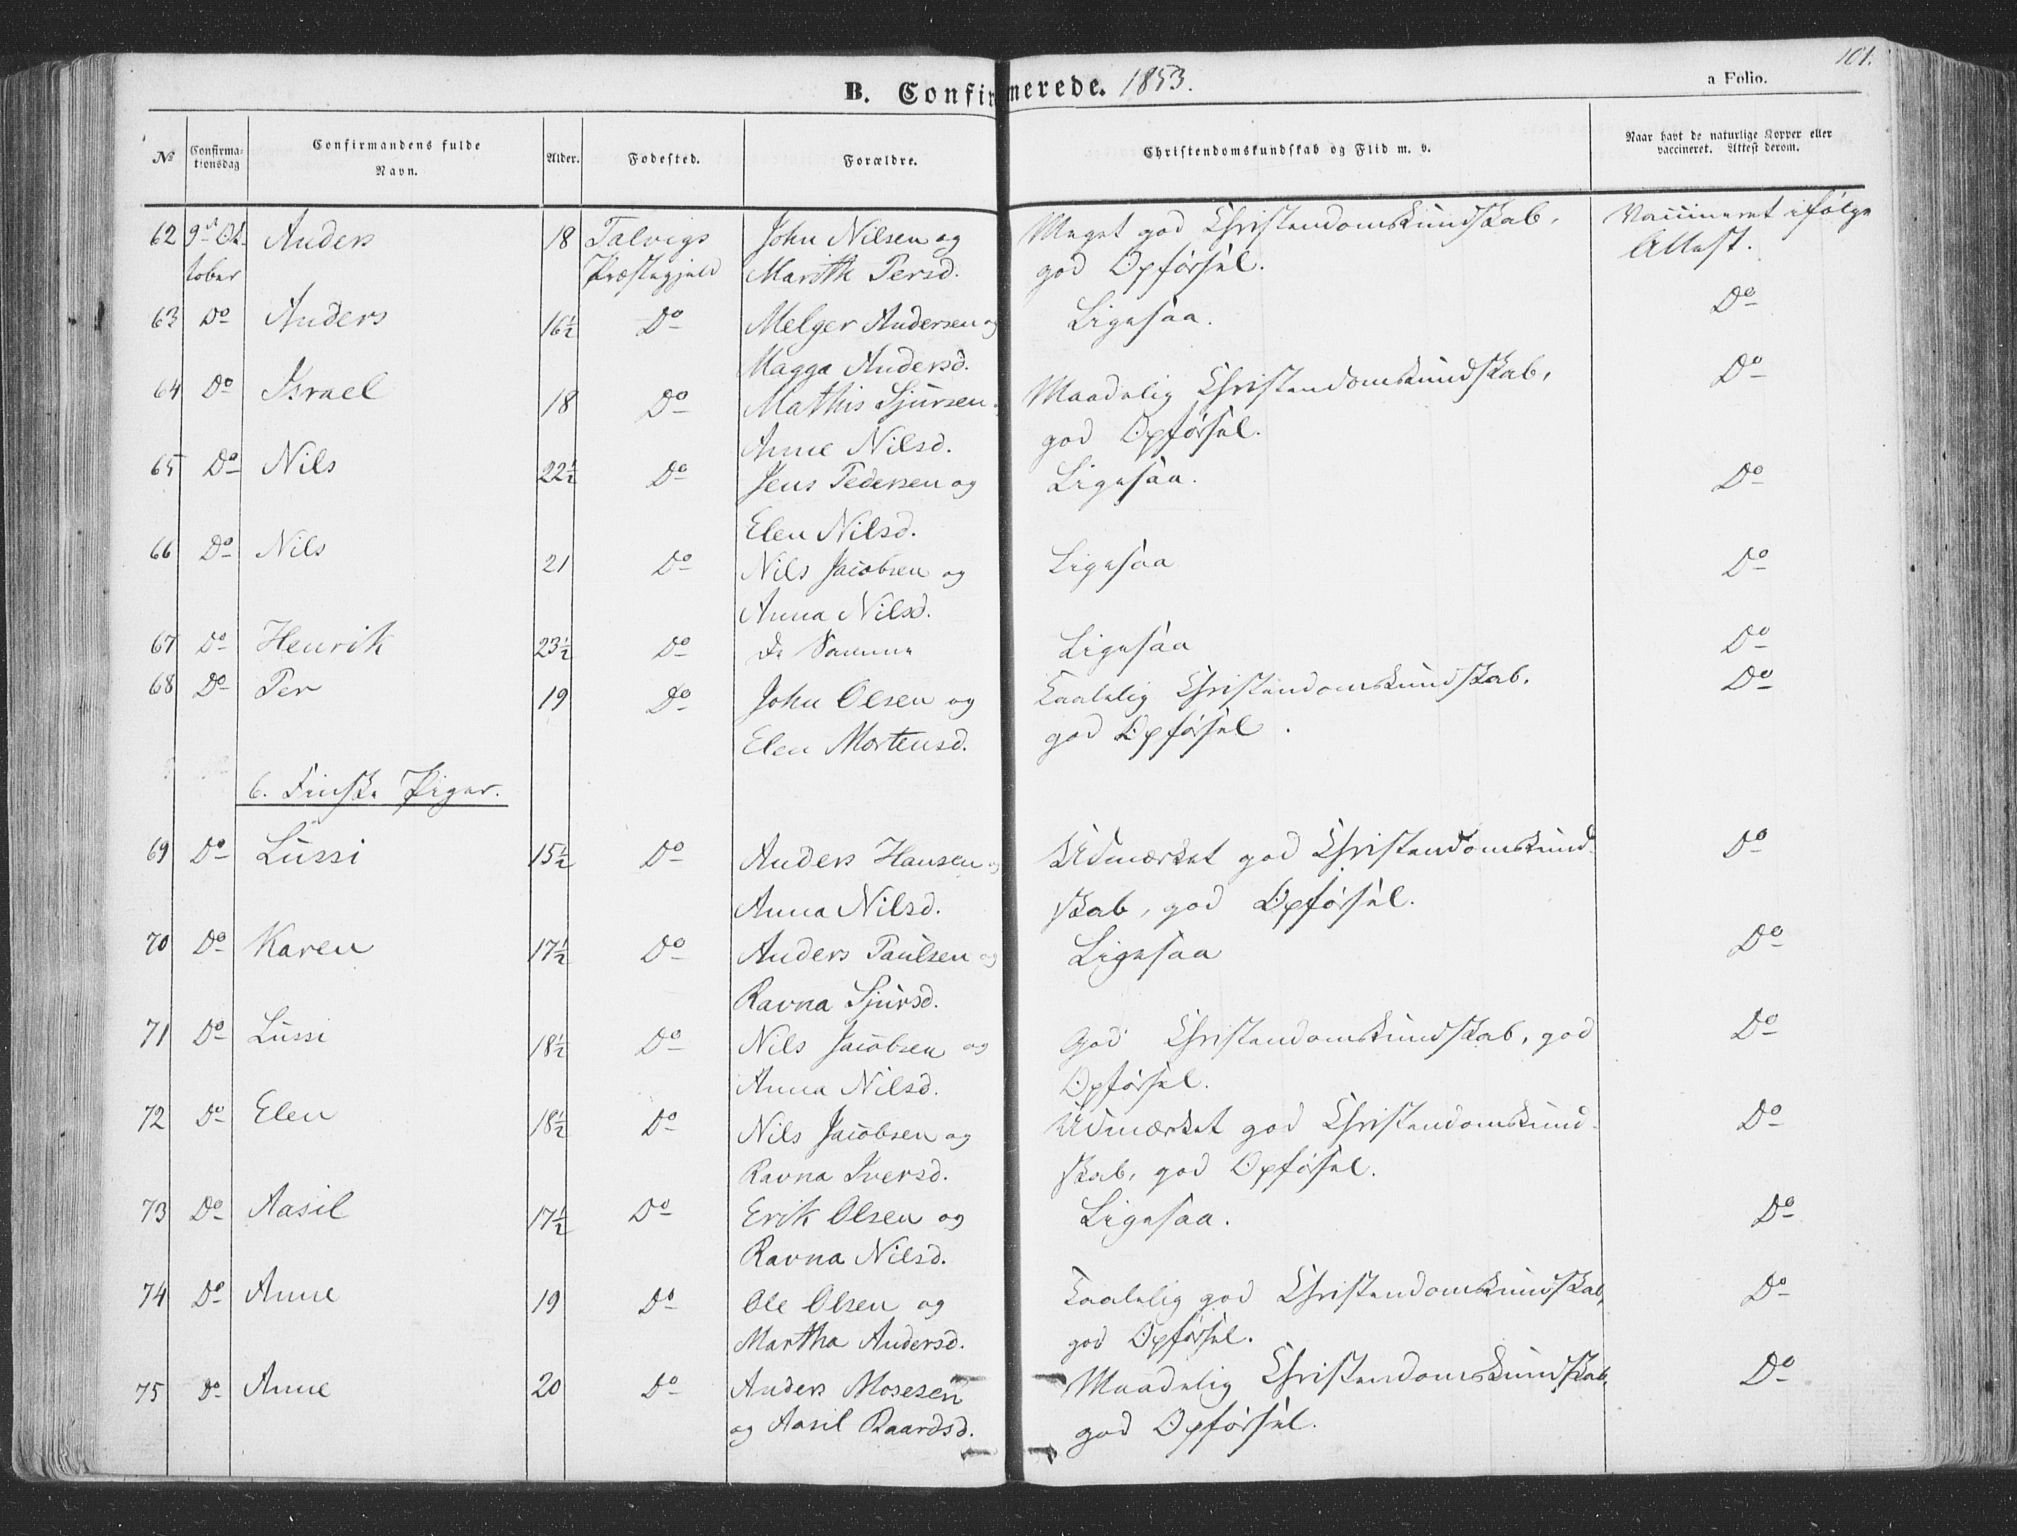 101.
B. Confirmerede. 1853.
a Folio.
No
Confirma-
tionsdag
Confirmandens fulde
Navn.
Alder.
Fødested.
Forældre.
Christendomskundskab og Flid m. v.
Naar havt de naturlige Kopper eller
vaccineret. Attest derom.
62 9de Ok- Anders 18 Talvigs John Nilsen og Meget god Christendomskundskab, Vaccineret ifølge
tober Præstegjeld Marith Persd. god Opførsel. Attest.
63 Do Anders 16½ Do Melger Andersen og Ligesaa. Do
Magga Andersd.
64 Do Israel 18 Do Mathis Sjursen Maadelig Christendomskundskab, Do
Anne Nilsd. god Opførsel.
65 Do Nils 22½ Do Jens Pedersen og Ligesaa. Do
Elen Nilsd.
66 Do Nils 21 Do Nils Jacobsen og Ligesaa Do
Anna Nilsd.
67 Do Henrik 23½ Do De Samme Ligesaa Do
68 Do Per 19 Do John Olsen og Taalelig Christendomskundskab, Do
Elen Mortensd. god Opførsel.
6. Finske Piger.
69 Do Lussi 15½ Do Anders Hansen og Udmærket god Christendomskund- Do
Anna Nilsd. skab, god Opførsel.
70 Do Karen 17½ Do Anders Paulsen og Ligesaa Do
Ravna Sjursd.
71 Do Lussi 18½ Do Nils Jacobsen og God Christendomskundskab, god Do
Anna Nilsd. Opførsel.
72 Do Elen 18½ Do Nils Jacobsen og Udmærket god Christendomskund- Do
Ravna Iversd. skab, god Opførsel.
73 Do Aasil 17½ Do Erik Olsen og Ligesaa. Do
Ravna Nilsd.
74 Do Anne 19 Do Ole Olsen og Taalelig god Christendomskundskab, Do
Martha Andersd. god Opførsel.
75 Do Anne 20 Do Anders Mosesen Maadelig Christendomskundskab, Do
og Aasil Baardsd. god Opførsel.